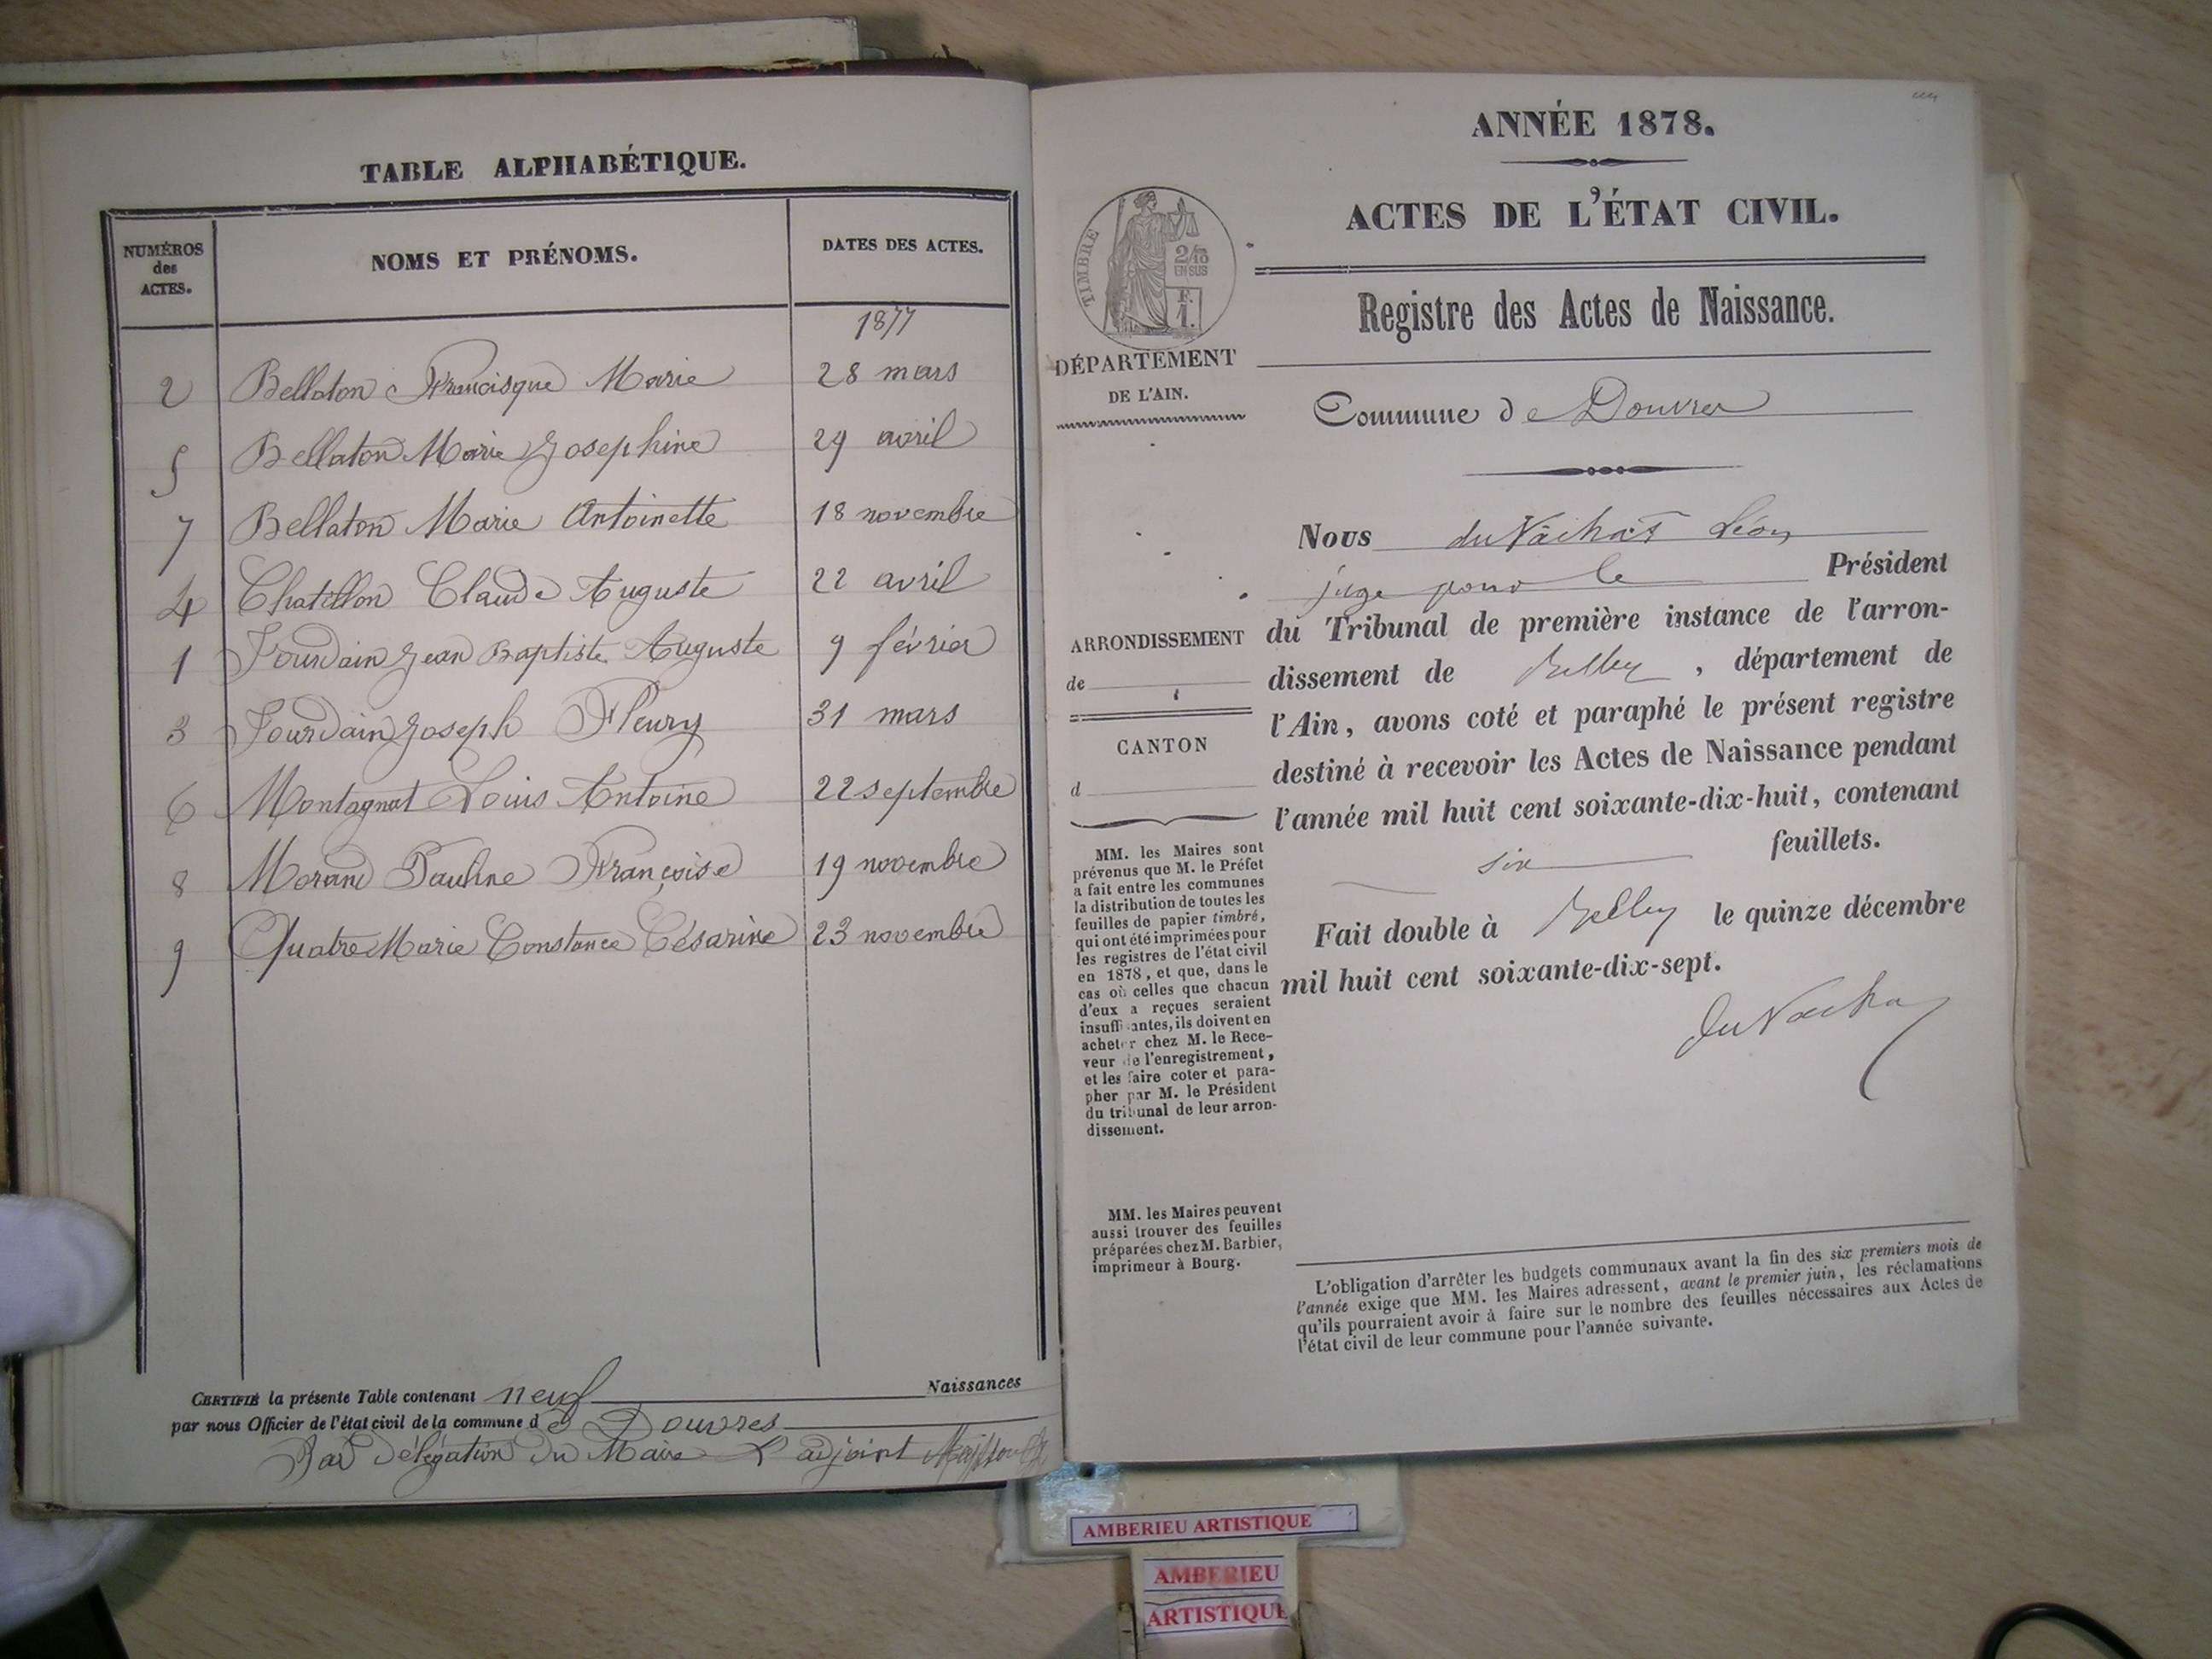 TABLE ALPHABÉTIQUE.
NUMÉROS des ACTES. NOMS ET PRÉNOMS. DATES DES ACTES.
1877
2 Bellaton Francisque Marie 28 mars
5 Bellaton Marie Josephine 29 avril
7 Bellaton Marie Antoinette 18 novembre
4 Chatillon Claude Auguste 22 avril
1 Jourdain Jean Baptiste Auguste 9 février
3 Jourdain Joseph Fleury 31 mars
6 Montagnat Louis Antoine 22 septembre
8 Morand Pauline Françoise 19 novembre
9 Quatre Marie Constance Césarine 23 novembre
CERTIFIÉ la présente Table contenant neuf Naissances
par nous Officier de l'état civil de la commune de Douvres
Par délégation du Maire L'adjoint
ANNÉE 1878.
ACTES DE L'ÉTAT CIVIL.
TIMBRE
2/10
EN SUS
F.
1.
Registre des Actes de Naissance.
DÉPARTEMENT
DE L'AIN.
Commune de Douvres
Nous du Vachat Léon
juge pour le Président
du Tribunal de première instance de l'arron-
dissement de Belley, département de
l'Ain, avons coté et paraphé le présent registre
destiné à recevoir les Actes de Naissance pendant
l'année mil huit cent soixante-dix-huit, contenant
six feuillets.
Fait double à Belley le quinze décembre
mil huit cent soixante-dix-sept.
du Vachat
ARRONDISSEMENT
de
CANTON
d
MM. les Maires sont
prévenus que M. le Préfet
a fait entre les communes
la distribution de toutes les
feuilles de papier timbré,
qui ont été imprimées pour
les registres de l'état civil
en 1878, et que, dans le
cas où celles que chacun
d'eux a reçues seraient
insuffisantes, ils doivent en
acheter chez M. le Rece-
veur de l'enregistrement,
et les faire coter et para-
pher par M. le Président
du tribunal de leur arron-
dissement.
MM. les Maires peuvent
aussi trouver des feuilles
préparées chez M. Barbier,
imprimeur à Bourg.
L'obligation d'arrêter les budgets communaux avant la fin des six premiers mois de
l'année exige que MM. les Maires adressent, avant le premier juin, les réclamations
qu'ils pourraient avoir à faire sur le nombre des feuilles nécessaires aux Actes de
l'état civil de leur commune pour l'année suivante.
AMBERIEU ARTISTIQUE
AMBERIEU
ARTISTIQUE